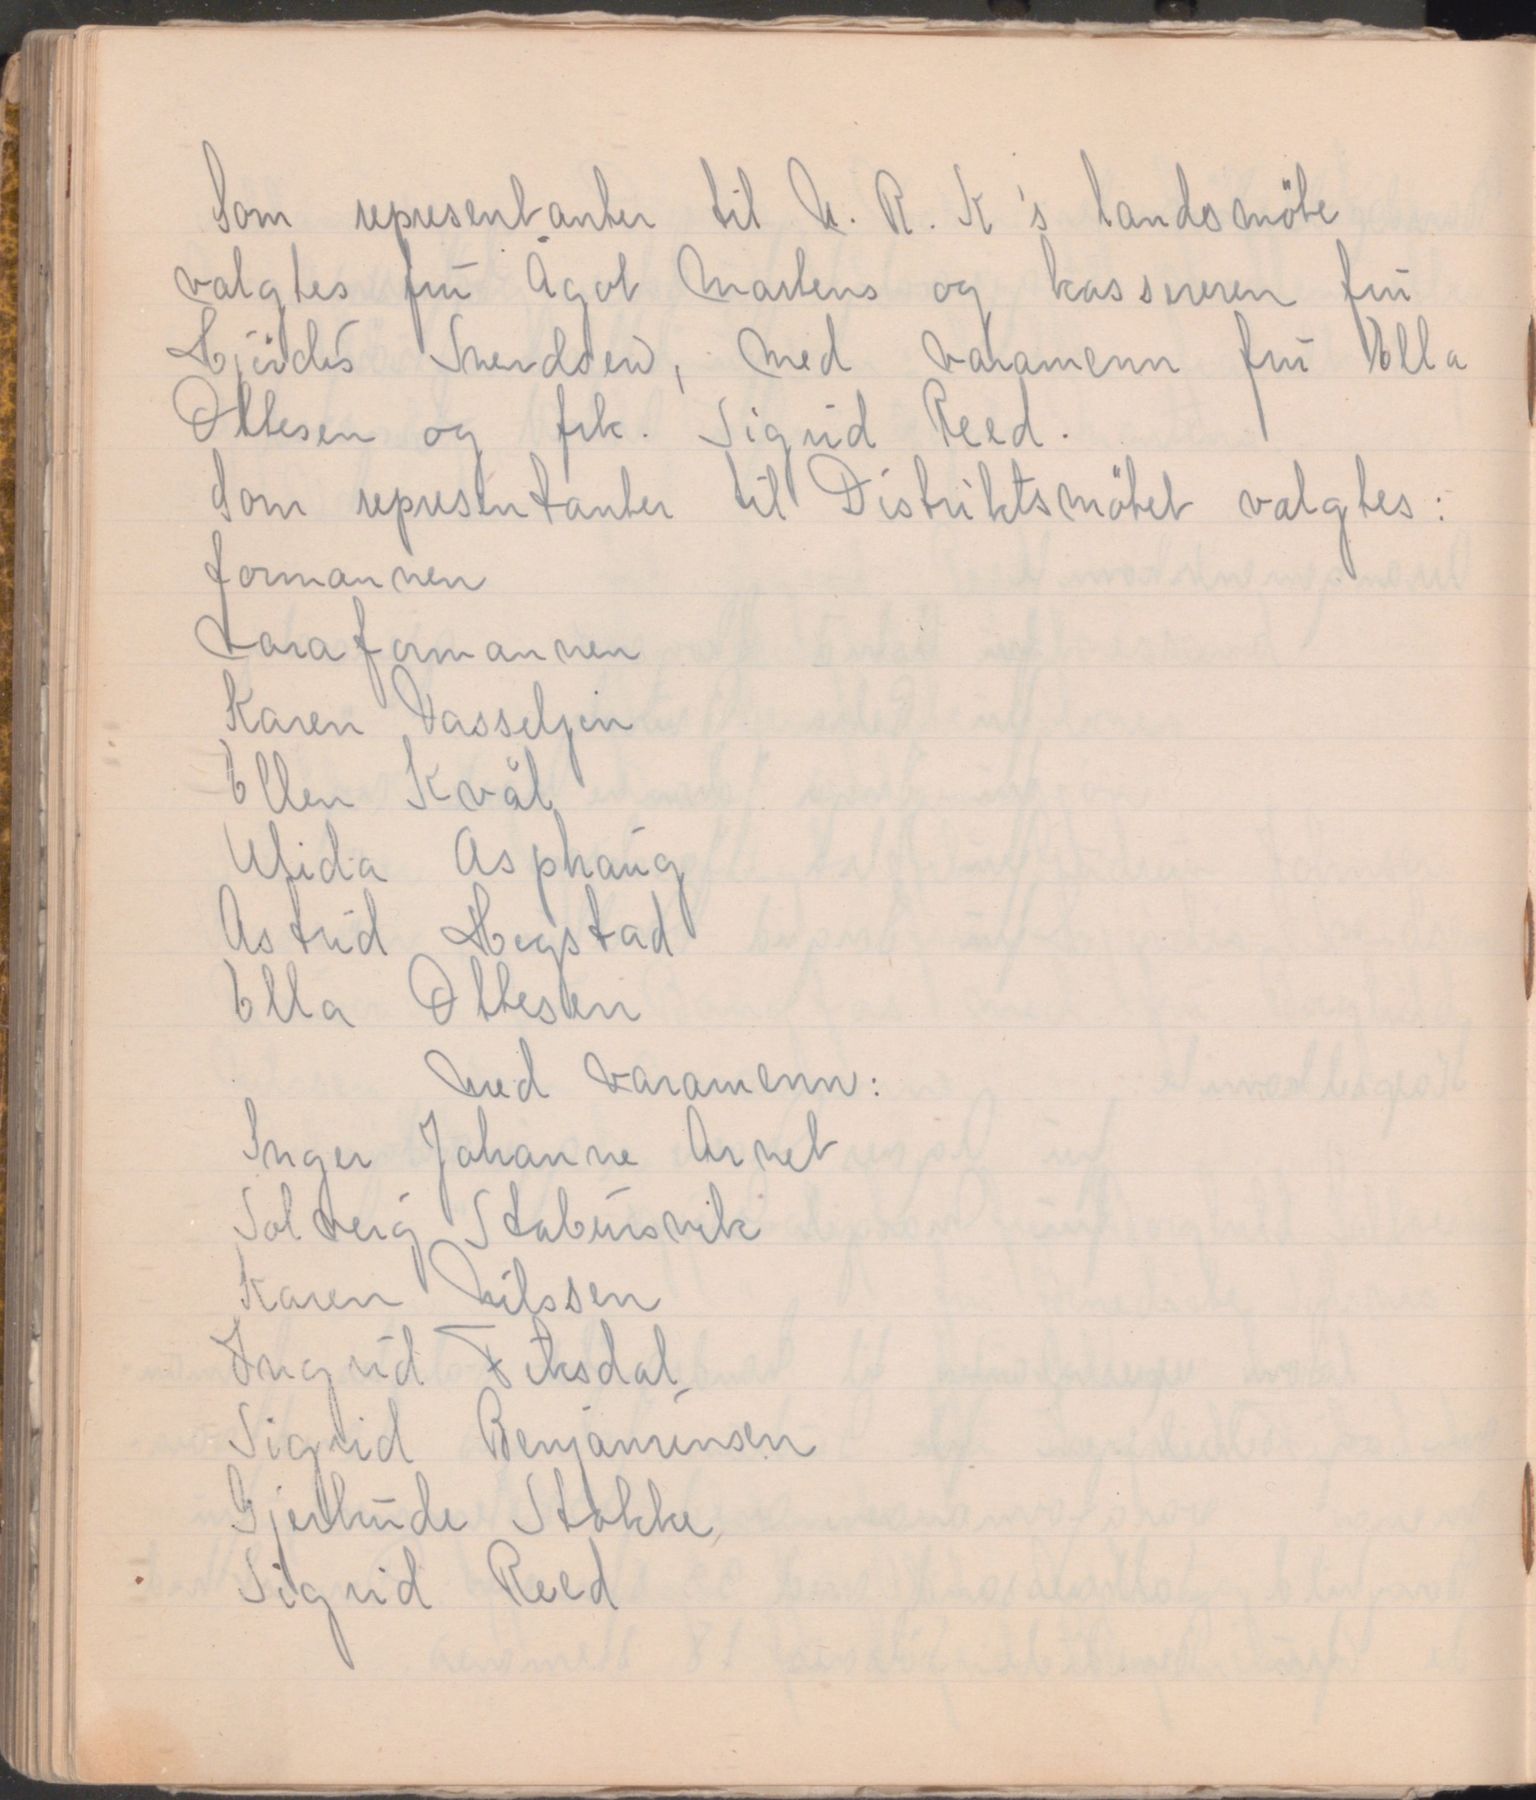 Som representanter til N. R. K's landsmöte
valgtes frú Ågot Martens og kassereren frú
Hjördis Svendsen, med varamenn frú Ella
Ottesen og frk. Sigrid Reed.
Som representanter til Distriktsmötet valgtes:
formannen
varaformannen
Karen Vasseljen
Ellen Kvål
Alida Asphaúg
Astrid Hegstad
Ella Ottesen
med varamenn:
Inger Johanne Arnet
Solveig Stabúrsvik
Karen Nilssen
Ingrid Fiksdal
Sigrid Benjaminsen
Gjertrúde Stokke
Sigrid Reed